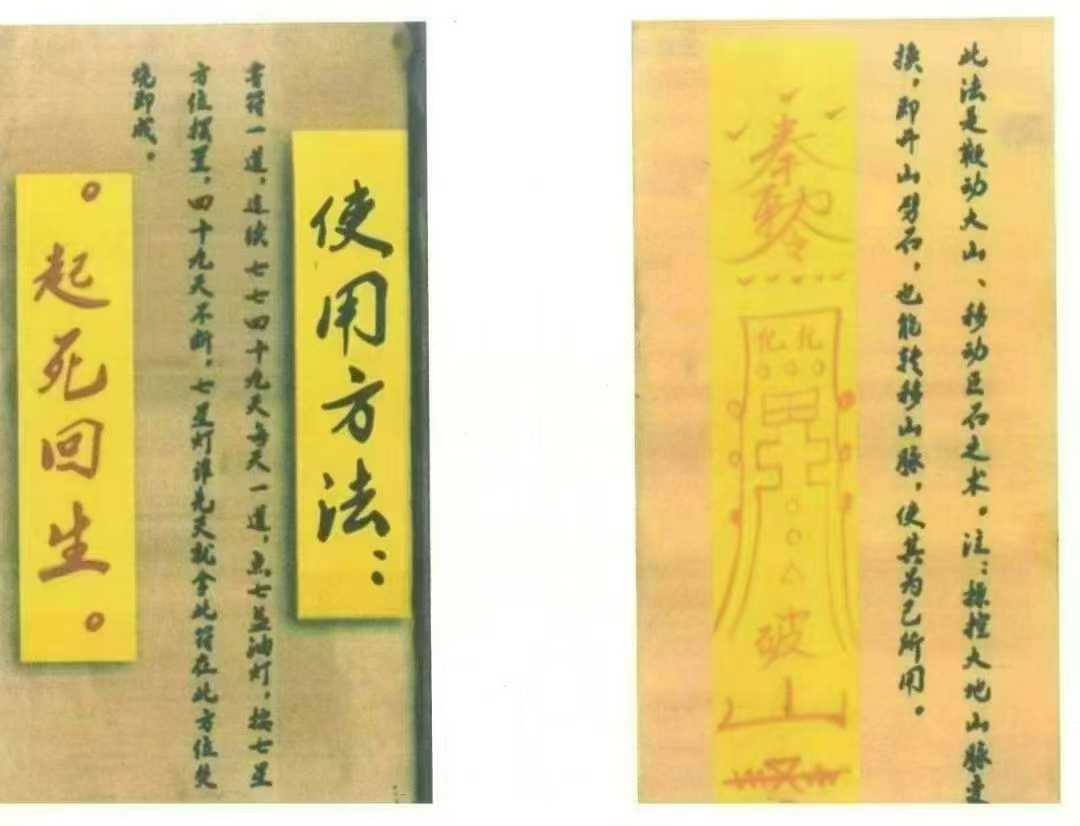 使用方法：
书符一道，连续七七四十九天每天一道，点七盏油灯，按七星
方位摆置，四十九天不断，七星灯谁先灭就拿此符在此方位焚
烧即成。
。起死回生。
此法是鞭动大山、移动巨石之术。注：操控大地山脉变
换，即开山劈石，也能转移山脉，使其为己所用。
奉
敕令
破
山